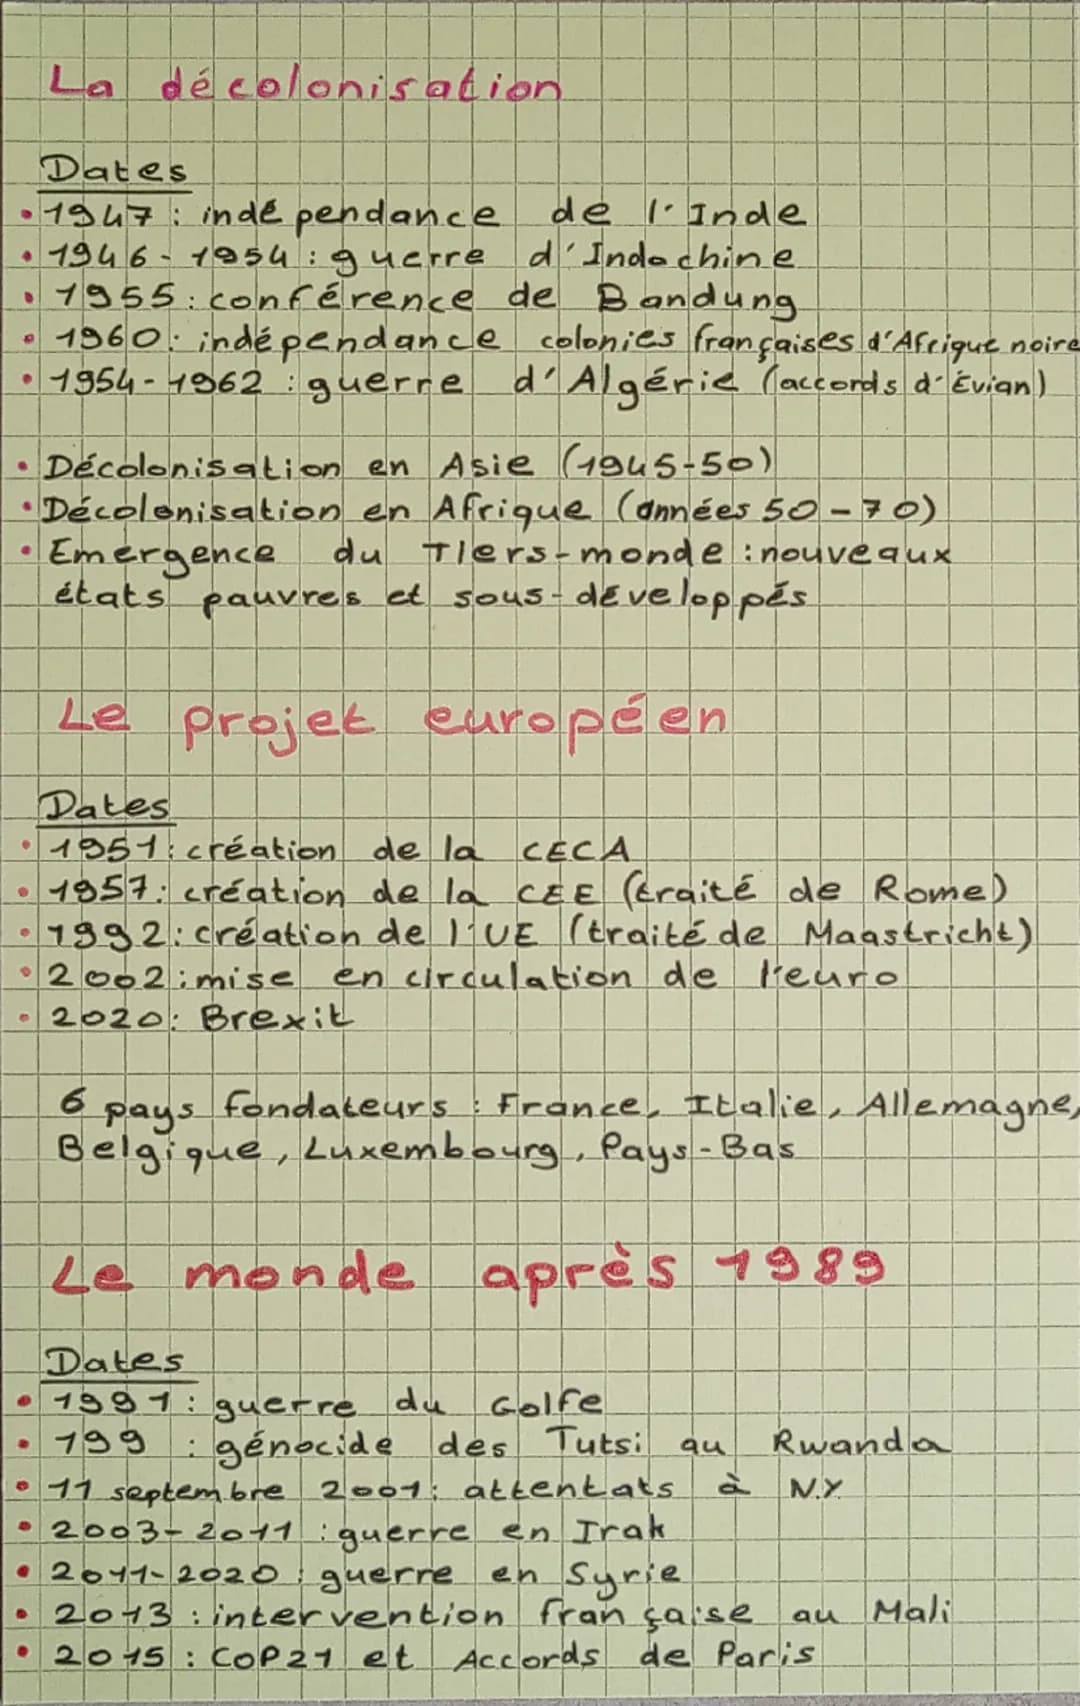 La décolonisation
Dates
• 1947 : indépendance de l'Inde
• 1946-1954 : guerre d'Indochine
• 1955 : conférence de Bandung
• 1960 : indépendance colonies françaises d'Afrique noire
• 1954-1962 : guerre d'Algérie (accords d'Évian)
• Décolonisation en Asie (1945-50)
• Décolonisation en Afrique (années 50-70)
• Emergence du Tiers-monde : nouveaux
états pauvres et sous-développés
Le projet européen
Dates
• 1951 : création de la CECA
• 1957 : création de la CEE (traité de Rome)
• 1992 : création de l'UE (traité de Maastricht)
• 2002 : mise en circulation de l'euro
• 2020 : Brexit
6 pays fondateurs : France, Italie, Allemagne,
Belgique, Luxembourg, Pays-Bas
Le monde après 1989
Dates
• 1991 : guerre du Golfe
• 199 : génocide des Tutsi au Rwanda
• 11 septembre 2001 : attentats à N.Y
• 2003-2011 : guerre en Irak
• 2011-2020 : guerre en Syrie
• 2013 : intervention française au Mali
• 2015 : COP21 et Accords de Paris